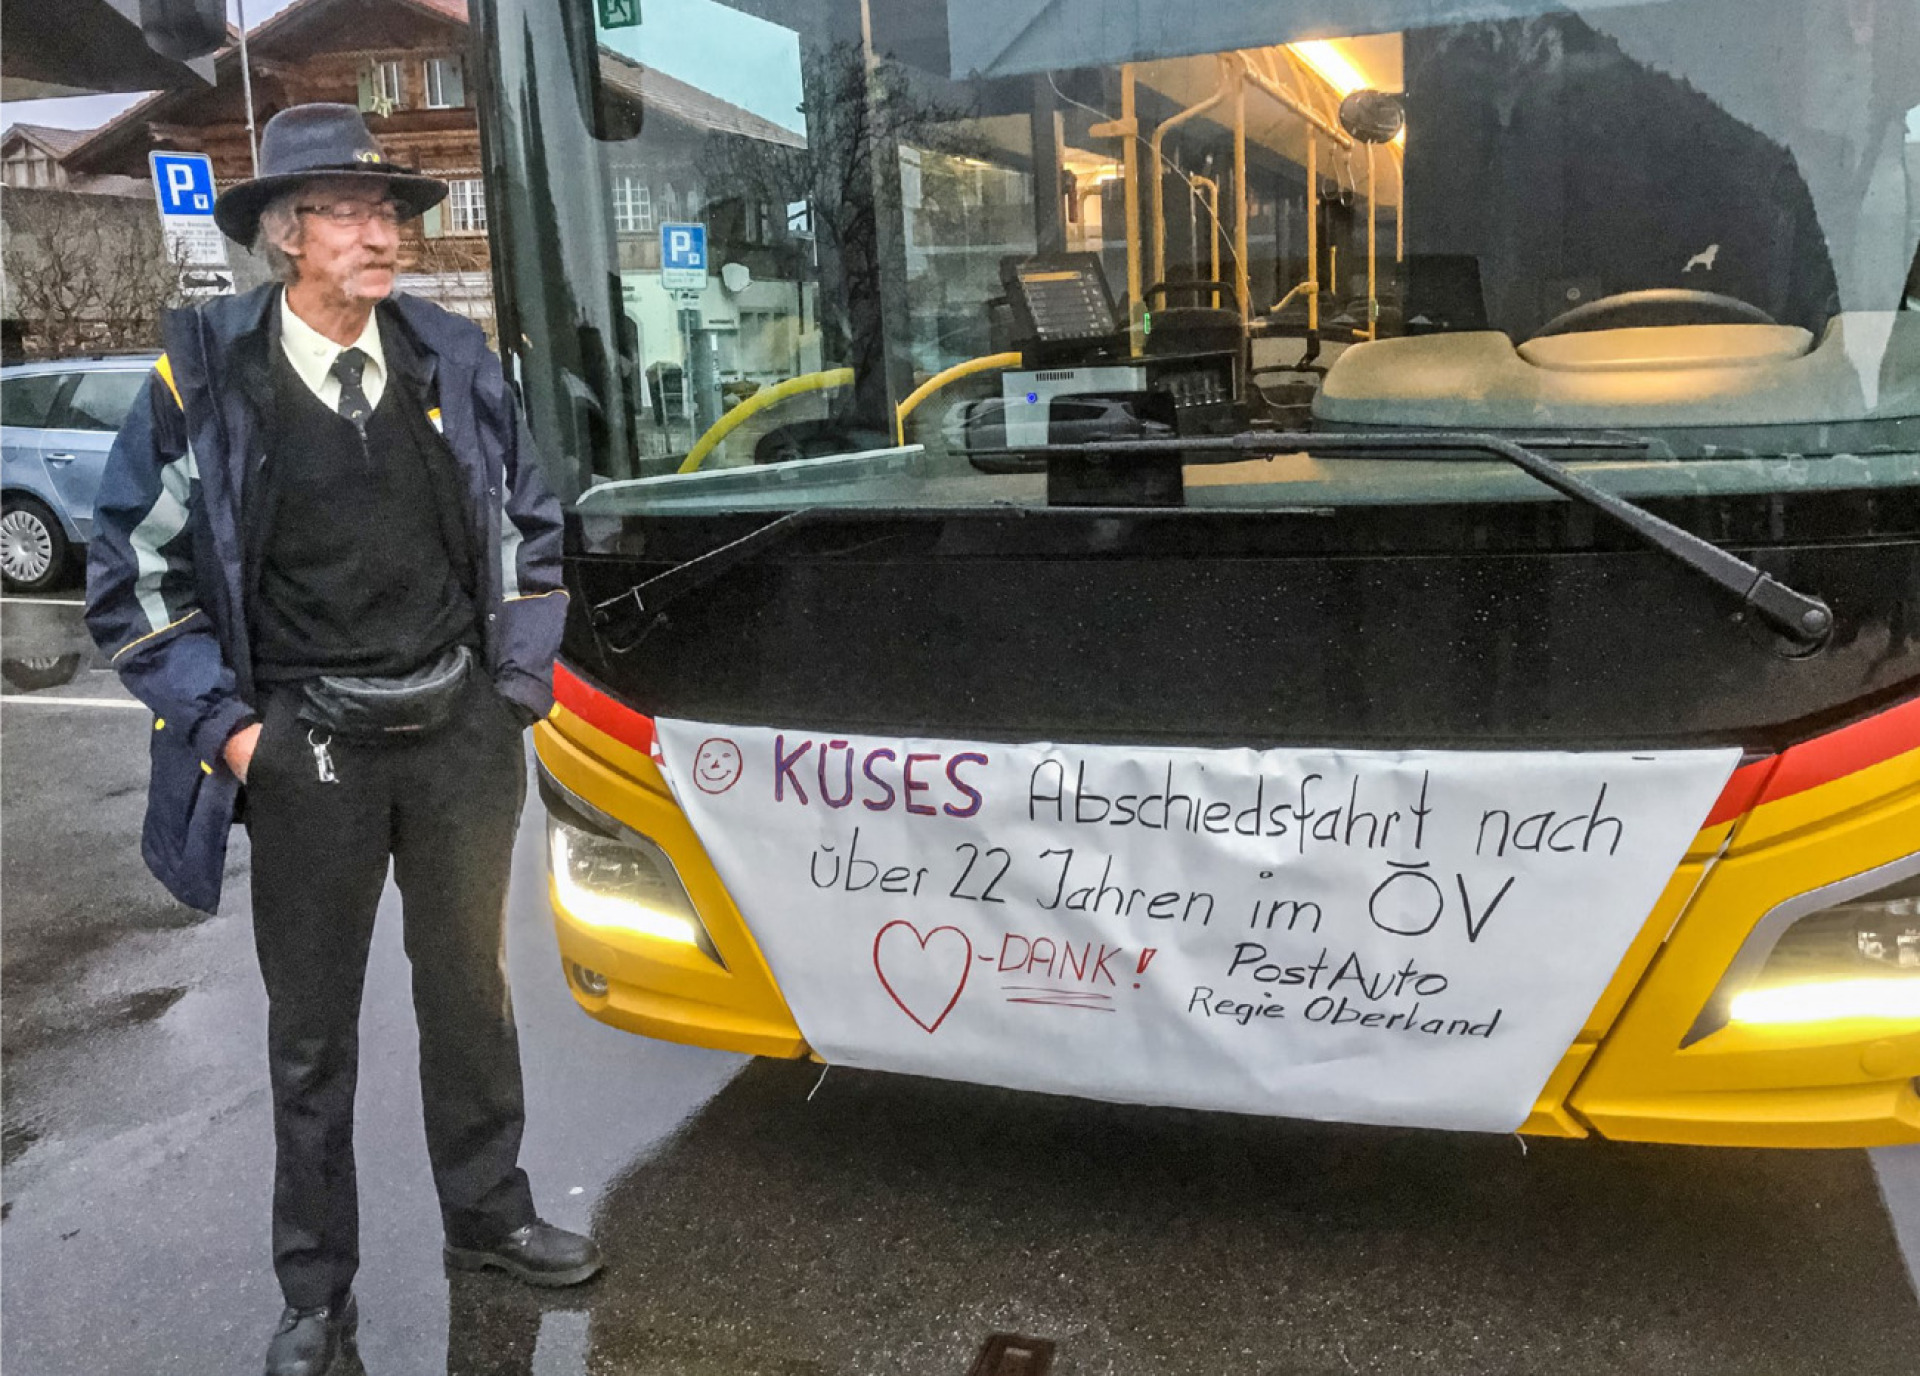 KÜSES Abschiedsfahrt nach
über 22 Jahren im ÖV
-DANK!
PostAuto
Regie Oberland
P
P